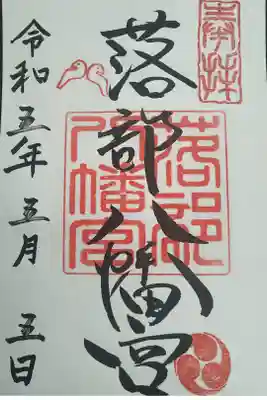 奉拝
落部八幡宮
落部
八幡宮
令和五年五月五日